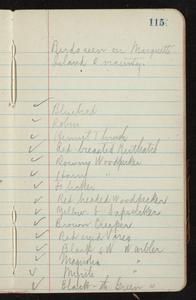 115
Birds seen on Marquette
Island & vicinity.
✓ Bluebird
✓ Robin
✓ Hermit Thrush
✓ Red breasted Nuthatch
✓ Downy Woodpecker
✓ Hairy "
✓ Flicker
✓ Red headed Woodpeckers
✓ Yellow B Sapsucker
✓ Brown Creeper
✓ Red eyed Vireo
✓ Black & W Warbler
✓ Magnolia "
✓ Myrtle "
✓ Black-th Green "